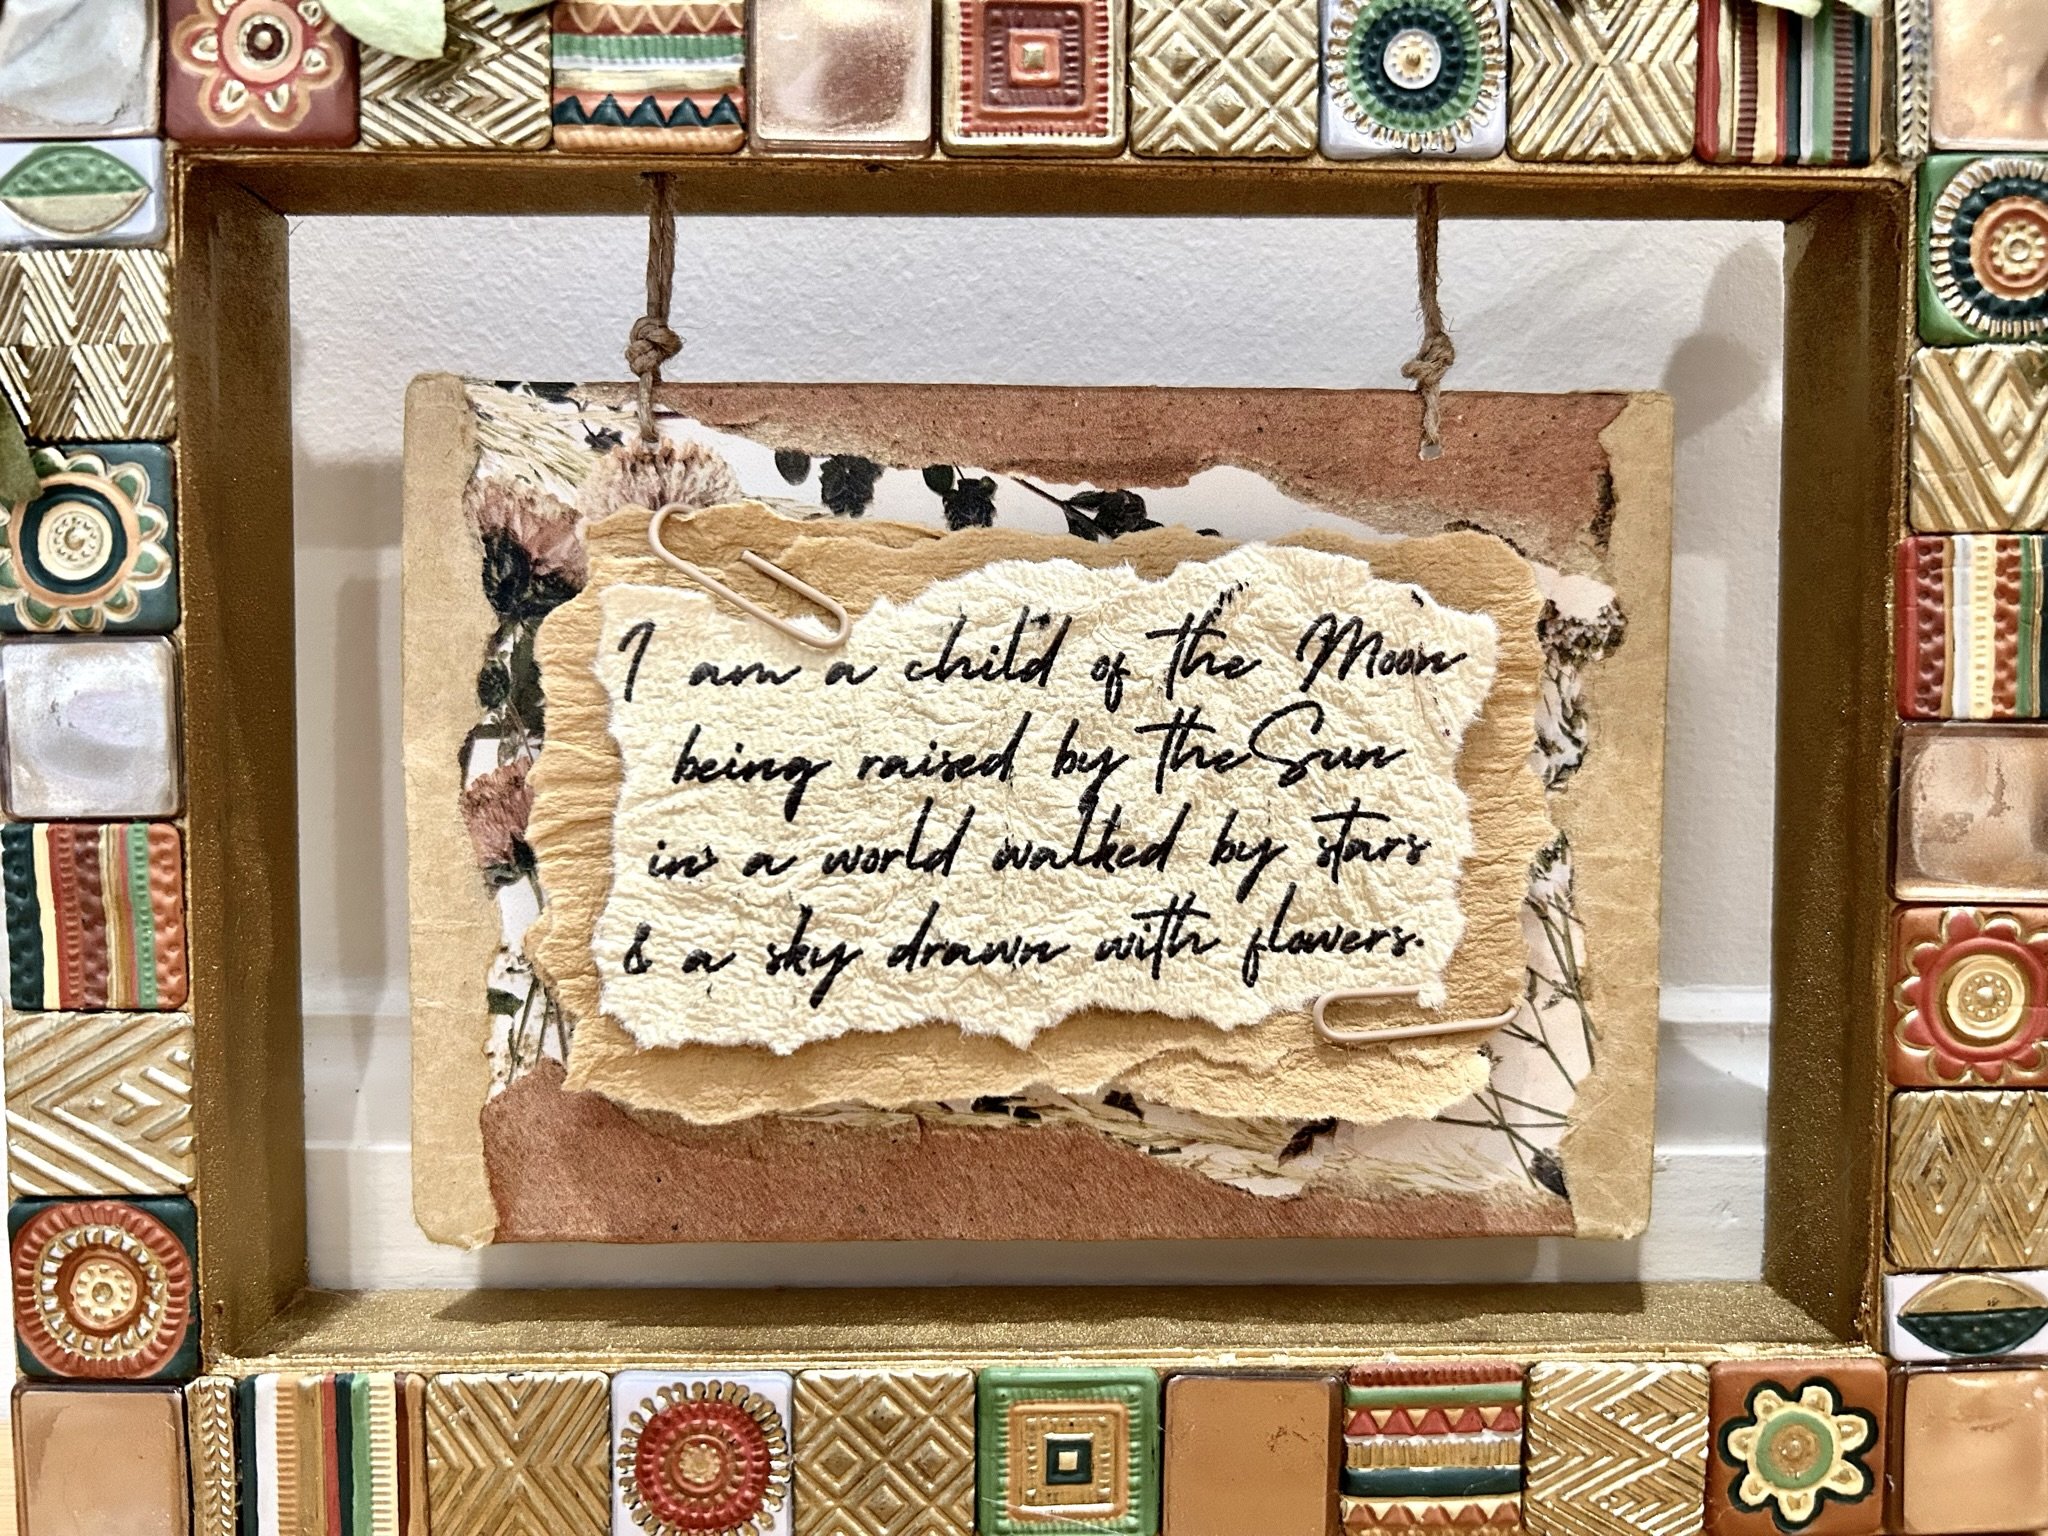 I am a child of the Moon
being raised by the Sun
in a world walked by stars
& a sky drawn with flowers.